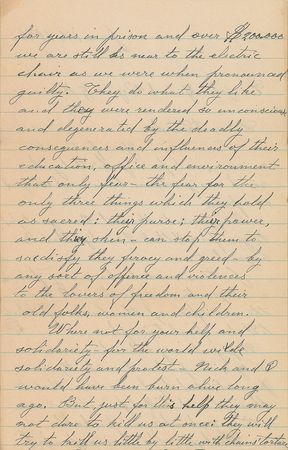 for years in prison and over $200.000
we are still as near to the electric
chair as we were when pronounced
guilty. They do what they like
and they were rendered so unconscious
and degenerated by the deadly
consequences and influences of their
education, office and environment
that only fear - the fear for the
only three things which they hold
as sacred: their purse; their power,
and they skin - can stop them to
sadisfy they firocy and greed - by
any sort of offence and violences
to the lovers of freedom and their
old folks, women and children.
Where not for your help and
solidariety - for the world wide
solidariety and protest - Nick and I
would have been burn alive long
ago. But just for this help they may
not dare to kill us at once: they will
try to kill us little by little with chains torture